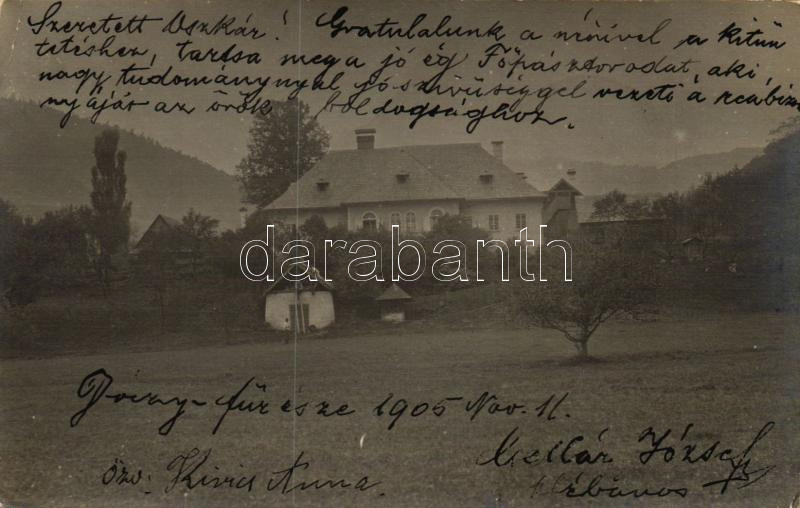 Szeretett Oszkár! Gratulalunk a nővivel a kitün
tetéshez, tartsa meg a jó ég Főpásztorodat, aki
nagy tudománynyal jó szivüséggel vezeti a reabizott
nyáját az örök boldogsághoz.
darabanth
fürésze 1905 Nov. 11.
Mellár József
özv. Kivics Anna.
plébános